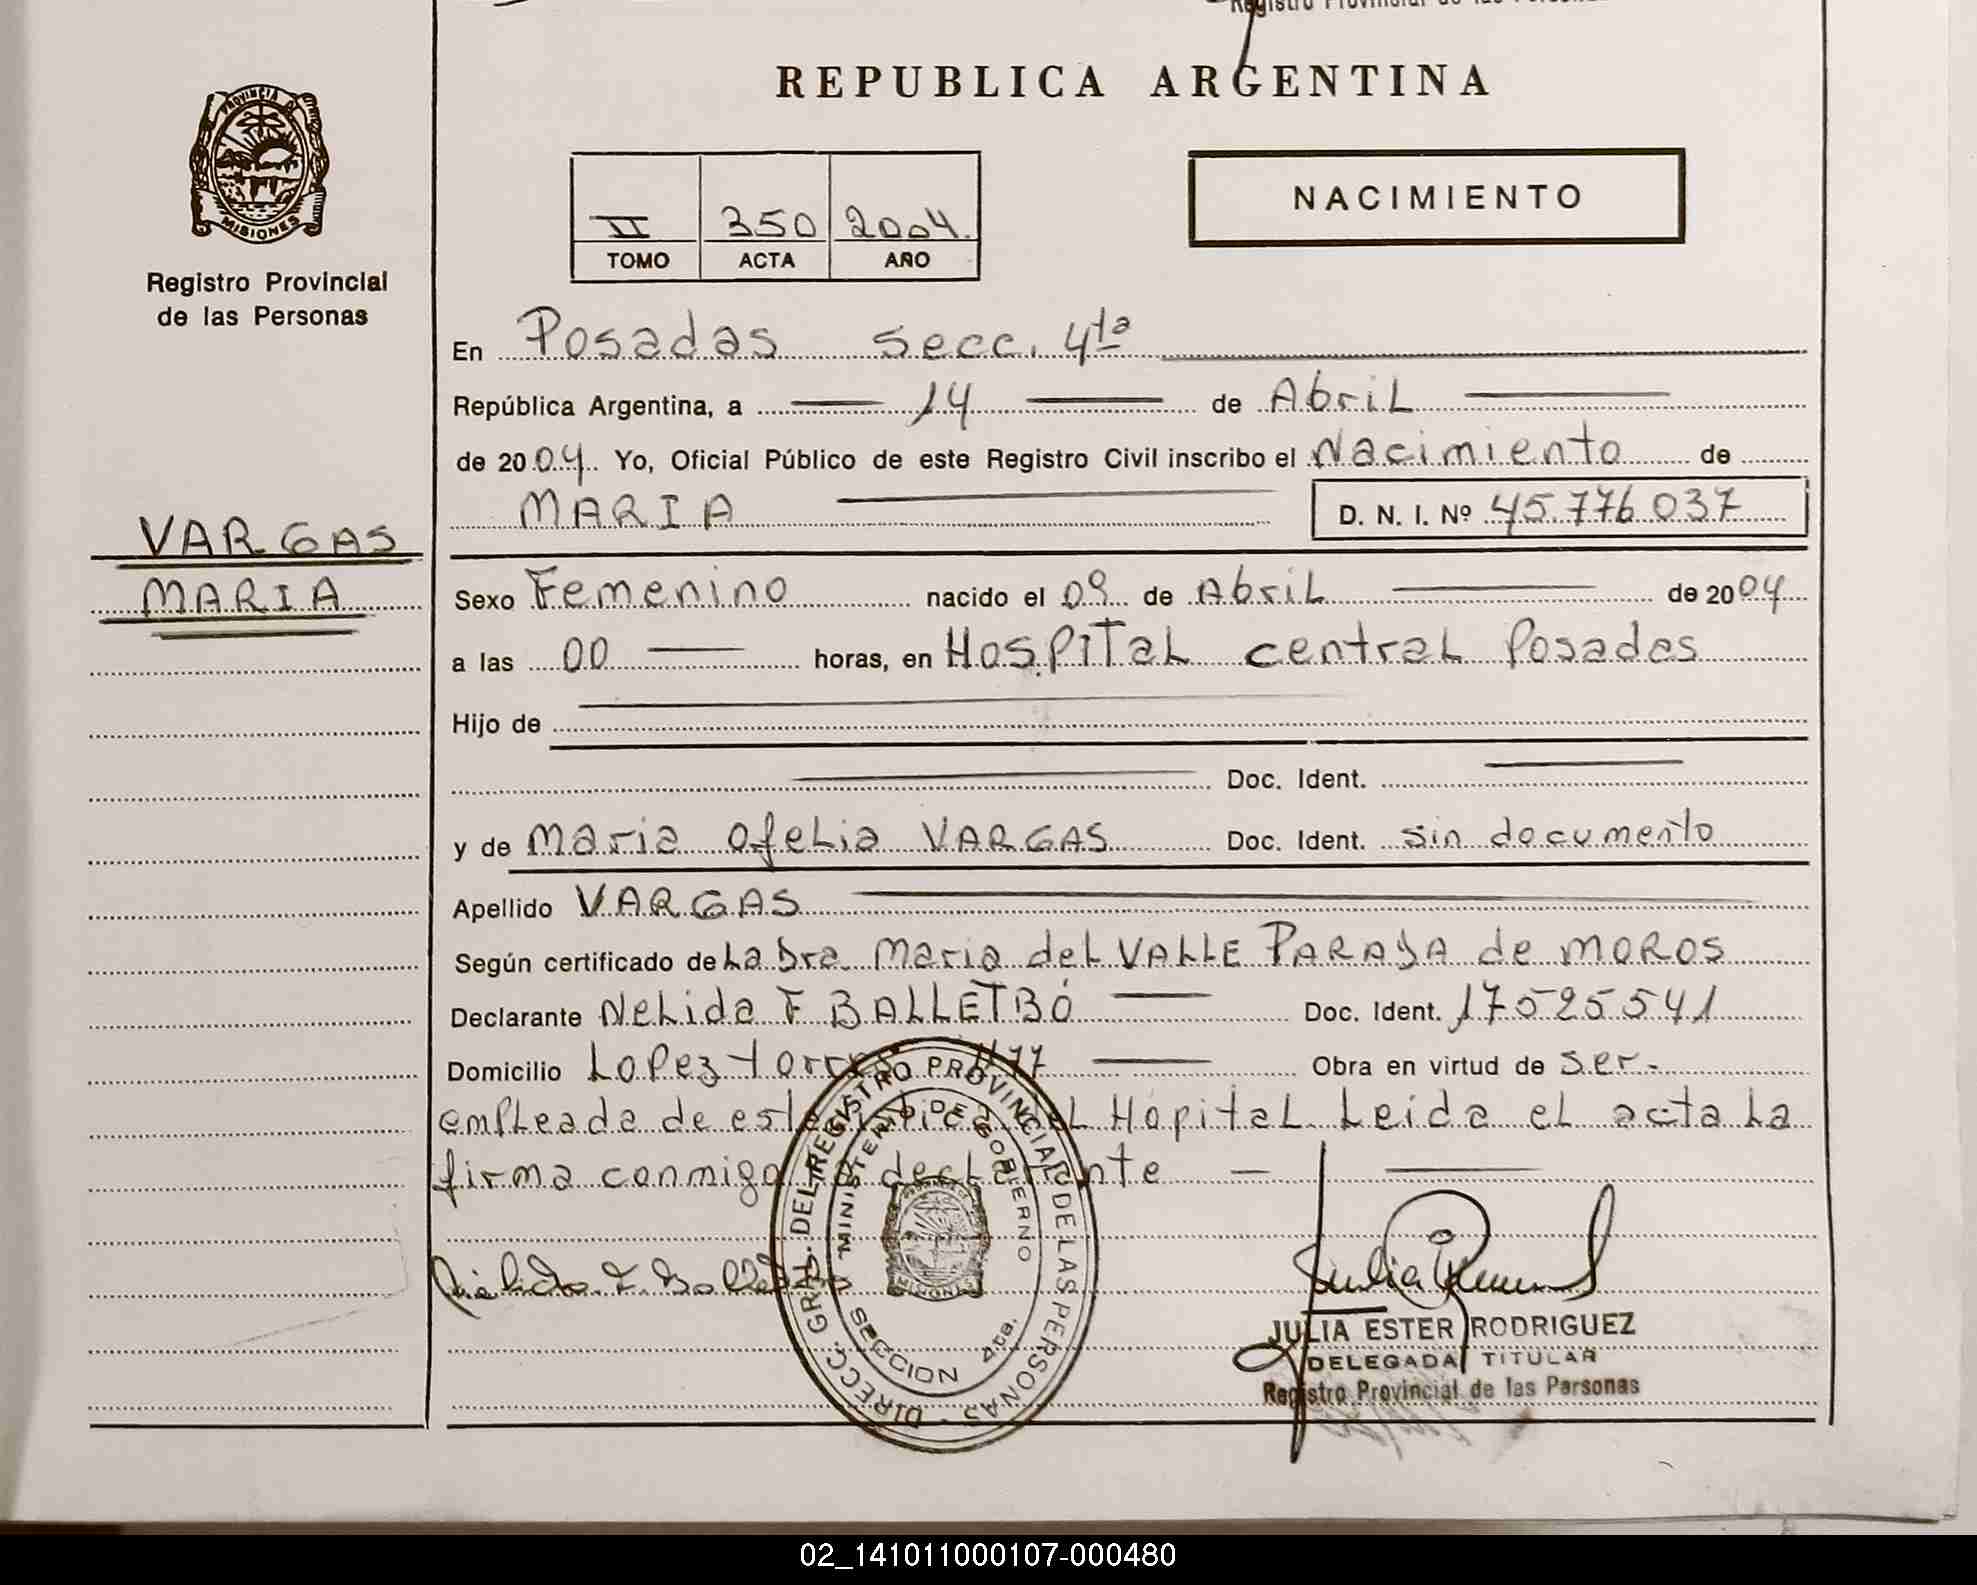 Registro Provincial de las Personas
REPUBLICA ARGENTINA
PROVINCIA D
MISIONES
Registro Provincial
de las Personas
II 350 2004.
TOMO ACTA AÑO
NACIMIENTO
En Posadas secc. 4ta
República Argentina, a 14 de Abril
de 2004 Yo, Oficial Público de este Registro Civil inscribo el Nacimiento de
MARIA D. N. I. Nº 45.776.037
VARGAS
MARIA
Sexo Femenino nacido el 09 de Abril de 2004
a las 00 horas, en HosPiTal central Posadas
Hijo de
Doc. Ident.
y de Maria Ofelia VARGAS Doc. Ident. sin documento
Apellido VARGAS
Según certificado de La Dra. Maria del VALLE de MOROS
Declarante Nelida F BALLETBÓ Doc. Ident. 17525541
Domicilio Lopez torres Obra en virtud de ser.
empleada de Hopital Leida el acta La
firma conmigo declarante
Nelida F. Ballet
DIRECC. GRAL. DEL REGISTRO PROVINCIAL DE LAS PERSONAS
MINISTERIO DE GOBIERNO
MISIONES
SECCION 4ta.
JULIA ESTER RODRIGUEZ
DELEGADA TITULAR
Registro Provincial de las Personas
02_141011000107-000480